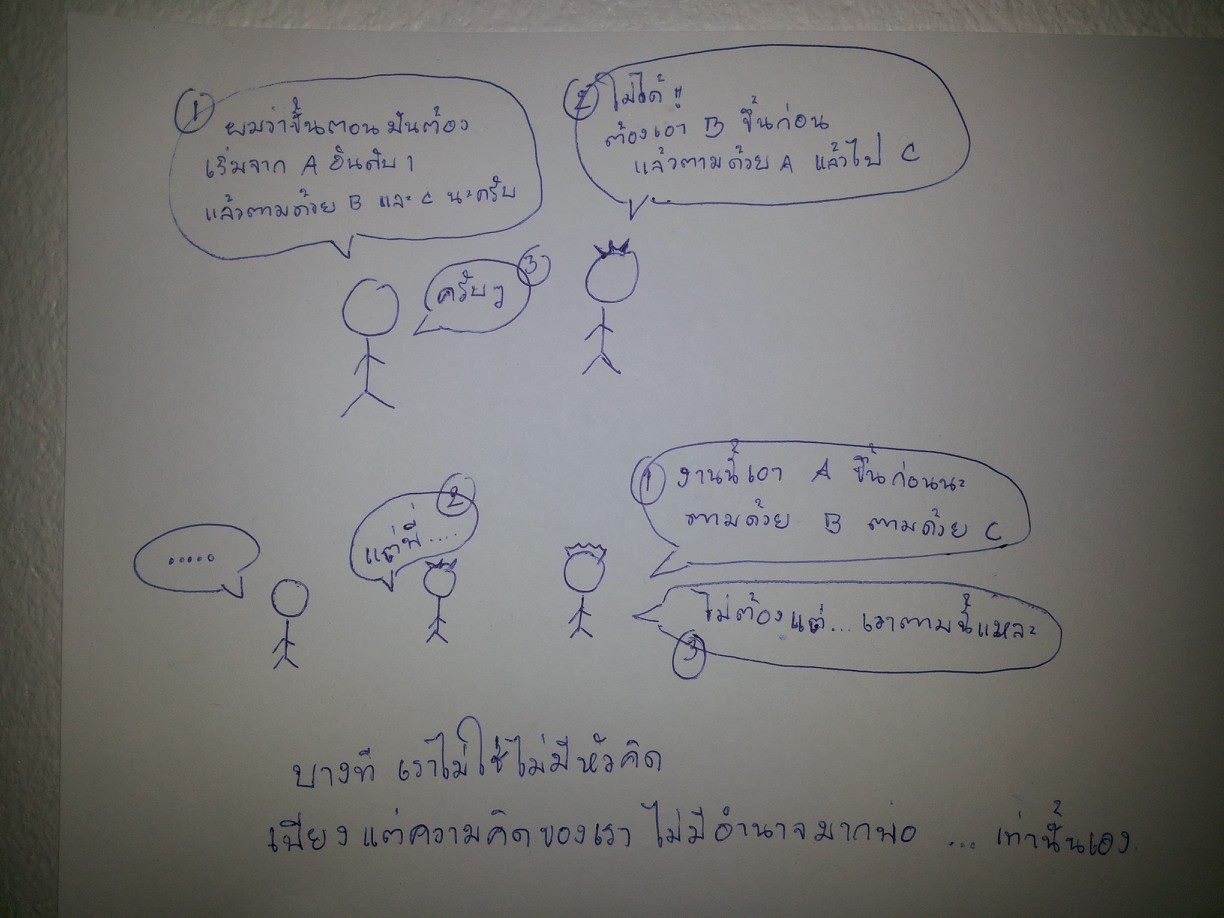 1
ผมว่าขั้นตอนมันต้อง
เริ่มจาก A อันดับ 1
แล้วตามด้วย B และ C นะครับ
2
ไม่ได้!!
ต้องเอา B ขึ้นก่อน
แล้วตามด้วย A แล้วไป C
3
ครับๆ
1
งานนี้เอา A ขึ้นก่อนนะ
ตามด้วย B ตามด้วย C
2
แต่พี่....
.....
3
ไม่ต้องแต่... เอาตามนี้แหละ
บางที เราไม่ใช่ไม่มีหัวคิด
เพียงแต่ความคิดของเรา ไม่มีอำนาจมากพอ ... เท่านั้นเอง.